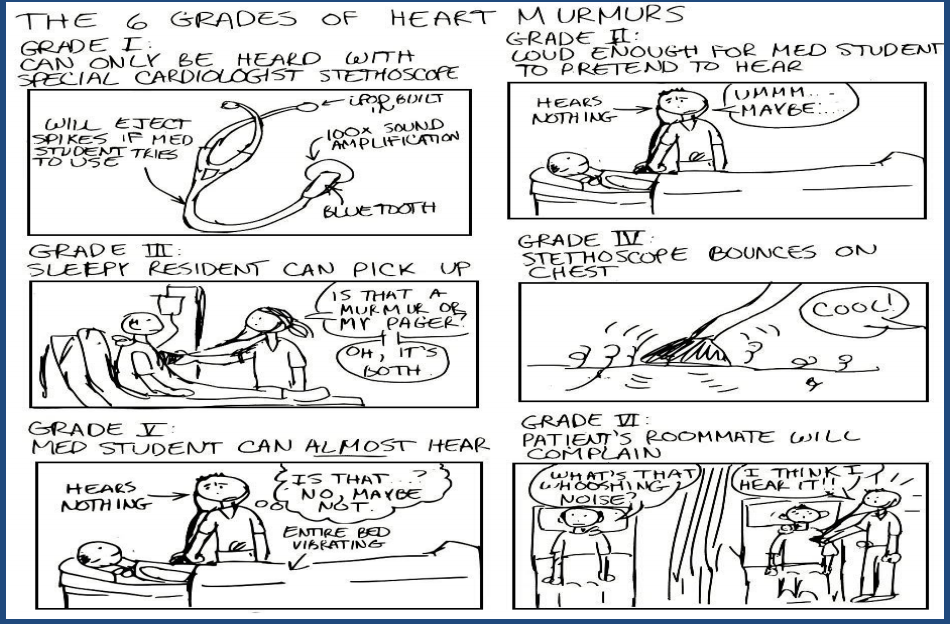 THE 6 GRADES OF HEART MURMURS
GRADE I:
CAN ONLY BE HEARD WITH
SPECIAL CARDIOLOGIST STETHOSCOPE
WILL EJECT
SPIKES IF MED
STUDENT TRIES
TO USE
IPOD BUILT
IN
100X SOUND
AMPLIFICATION
BLUETOOTH
GRADE II:
LOUD ENOUGH FOR MED STUDENT
TO PRETEND TO HEAR
HEARS
NOTHING
UMMM...
MAYBE...
GRADE III:
SLEEPY RESIDENT CAN PICK UP
IS THAT A
MURMUR OR
MY PAGER?
OH, IT'S
BOTH.
GRADE IV:
STETHOSCOPE BOUNCES ON
CHEST
COOL!
GRADE V:
MED STUDENT CAN ALMOST HEAR
HEARS
NOTHING
IS THAT...?
NO, MAYBE
NOT.
ENTIRE BED
VIBRATING
GRADE VI:
PATIENT'S ROOMMATE WILL
COMPLAIN
WHAT'S THAT
WHOOSHING
NOISE?
I THINK I
HEAR IT!!